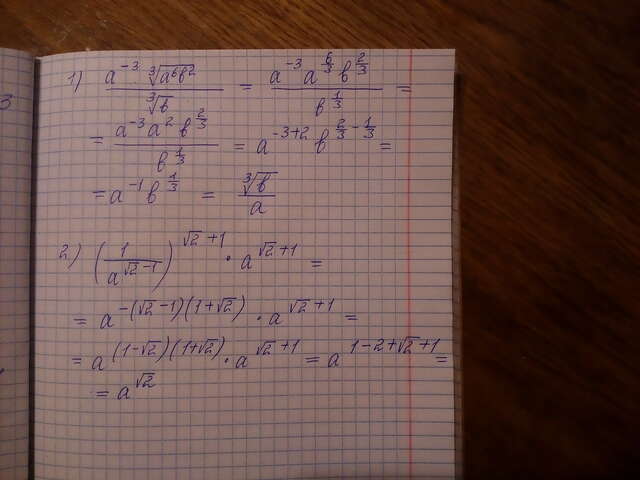 1) (a⁻³ ∛(a⁶в²))/(∛в) = (a⁻³ a^(6/3) в^(2/3))/(в^(1/3)) =
= (a⁻³ a² в^(2/3))/(в^(1/3)) = a^(-3+2) в^(2/3 - 1/3) =
= a⁻¹ в^(1/3) = (∛в)/a
2) (1/(a^(√2 -1)))^(√2 +1) · a^(√2 +1) =
= a^(-(√2 -1)(1+√2)) · a^(√2 +1) =
= a^((1-√2)(1+√2)) · a^(√2 +1) = a^(1-2+√2+1) =
= a^(√2)